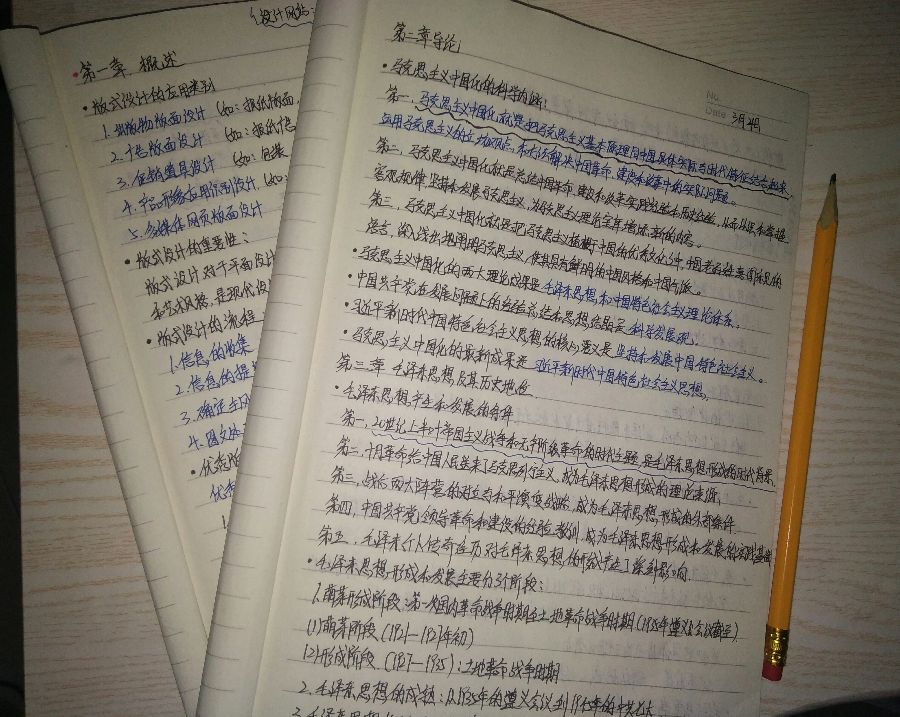 (设计网站:
第一章 概述
• 版式设计的应用类别
1. 出版物版面设计 (如: 报纸版面,
2. 广告版面设计 (如: 报纸广告,
3. 促销道具设计 (如: 包装
4. 产品形象应用识别设计 (如:
5. 多媒体网页版面设计
• 版式设计的重要性:
版式设计对于平面设计
艺术风格, 是现代设
• 版式设计的流程
1. 信息的收集
2. 信息的提
3. 确定主
4. 图文
No.
Date 3月4日
第二章 导论:
• 马克思主义中国化的科学内涵:
第一, 马克思主义中国化就是把马克思主义基本原理同中国具体实际与时代特征结合起来,
运用马克思主义的立场、观点、来方法解决中国革命、建设和改革中的实际问题。
第二, 马克思主义中国化就是总结中国革命、建设和改革实践经验和历史经验, 从而认识和掌握
客观规律, 坚持和发展马克思主义, 为马克思主义理论宝库增添新的内容。
第三, 马克思主义中国化就是把马克思主义植根于中国的优秀文化之中, 中国老百姓喜闻乐见的
语言, 深入浅出地阐明马克思主义, 使其具有鲜明的中国风格和中国气派。
• 马克思主义中国化的两大理论成果是毛泽东思想和中国特色社会主义理论体系。
中国共产党在发展问题上的经验总结和思想结晶是科学发展观。
• 习近平新时代中国特色社会主义思想的核心意义是坚持和发展中国特色社会主义。
• 马克思主义中国化的最新成果是 习近平新时代中国特色社会主义思想。
第三章 毛泽东思想及其历史地位
• 毛泽东思想产生和发展的条件
第一, 20世纪上半叶帝国主义战争和无产阶级革命的时代主题, 是毛泽东思想形成的时代背景。
第二, 十月革命给中国人民送来了马克思列宁主义, 成为毛泽东思想形成的理论来源。
第三, 战后两大阵营的对立与和平演变战略, 成为毛泽东思想形成的外部条件
第四, 中国共产党领导革命和建设的经验教训, 成为毛泽东思想形成和发展的实践基础
第五, 毛泽东个人传奇经历对毛泽东思想的形成产生了深刻影响.
• 毛泽东思想形成和发展主要分阶段:
1. 萌芽形成阶段: 第一次国内革命战争时期至土地革命战争时期 (1935年遵义会议截至)
(1) 萌芽阶段 (1921—1927年初)
(2) 形成阶段 (1927—1935): 土地革命战争时期
2. 毛泽东思想的成熟: 从1935年的遵义会议到1945年的中共七大